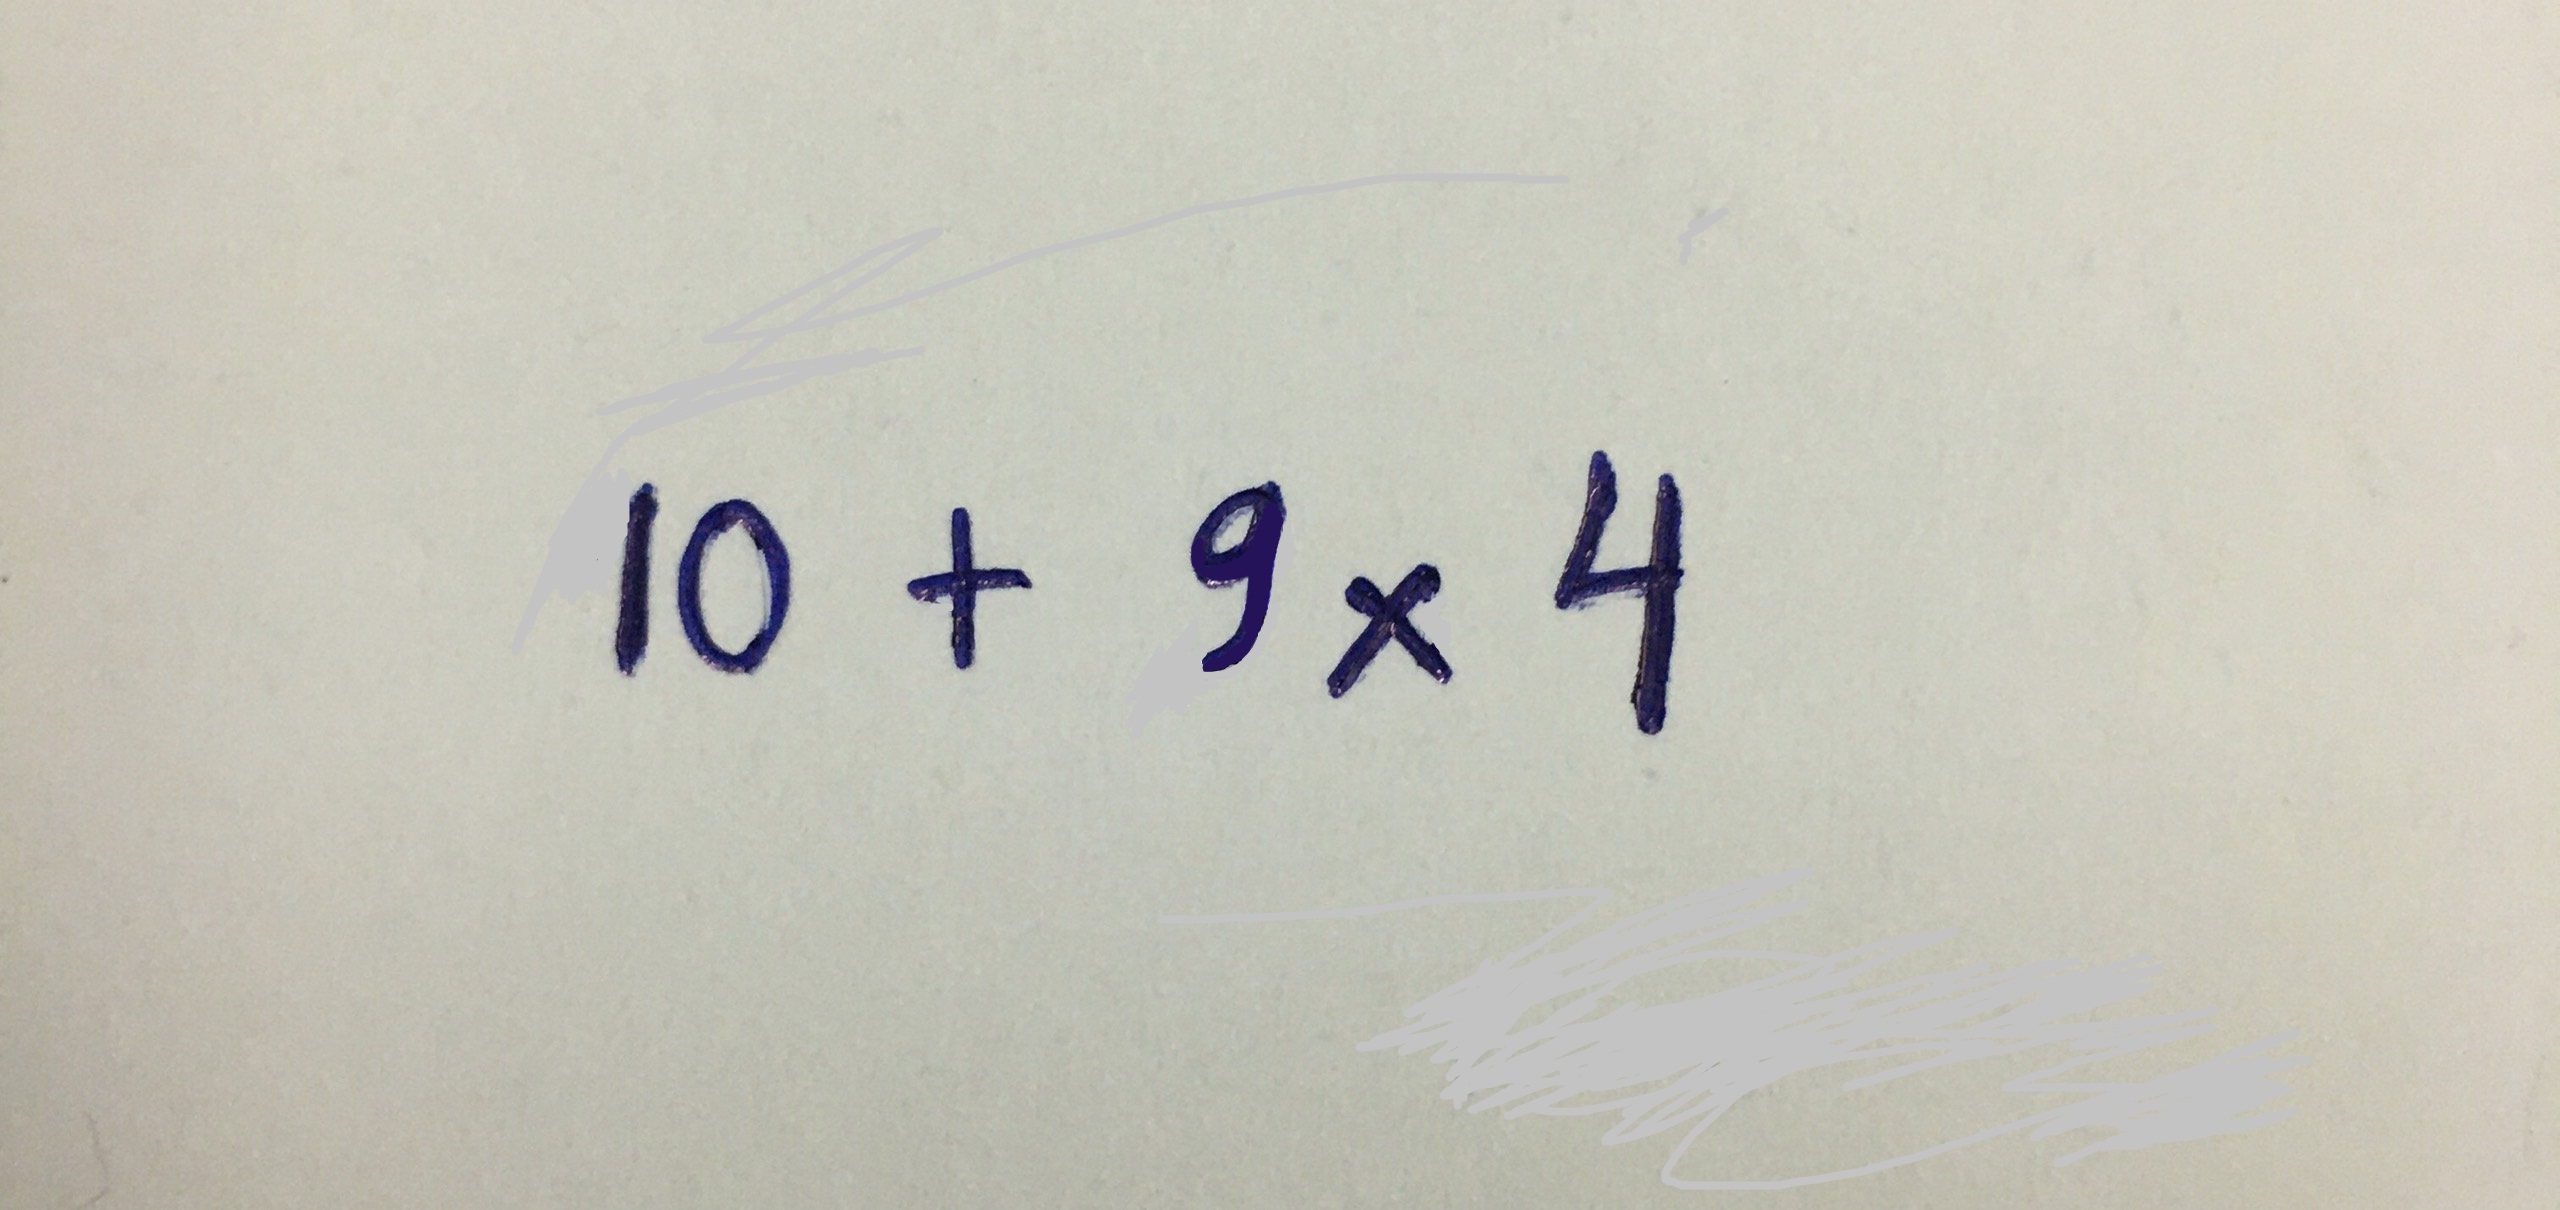 10 + 9 x 4